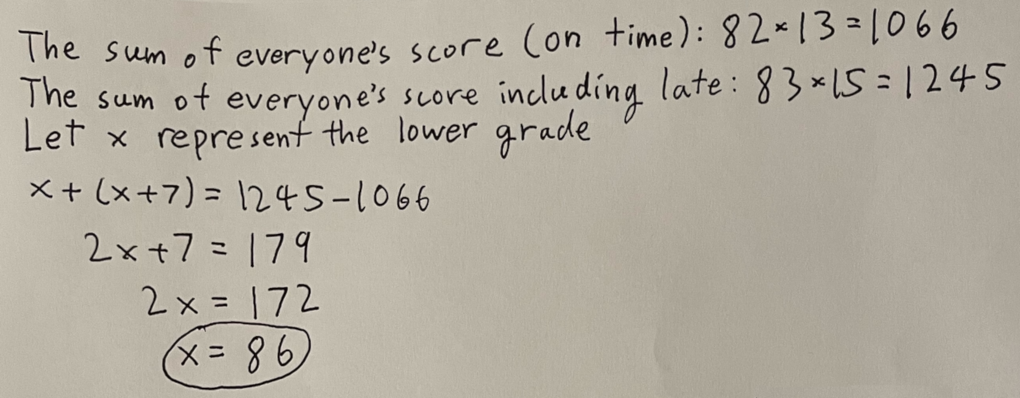 The sum of everyone's score (on time): 82×13=1066
The sum of everyone's score including late: 83×15=1245
Let x represent the lower grade
x+(x+7)=1245-1066
2x+7=179
2x=172
x=86